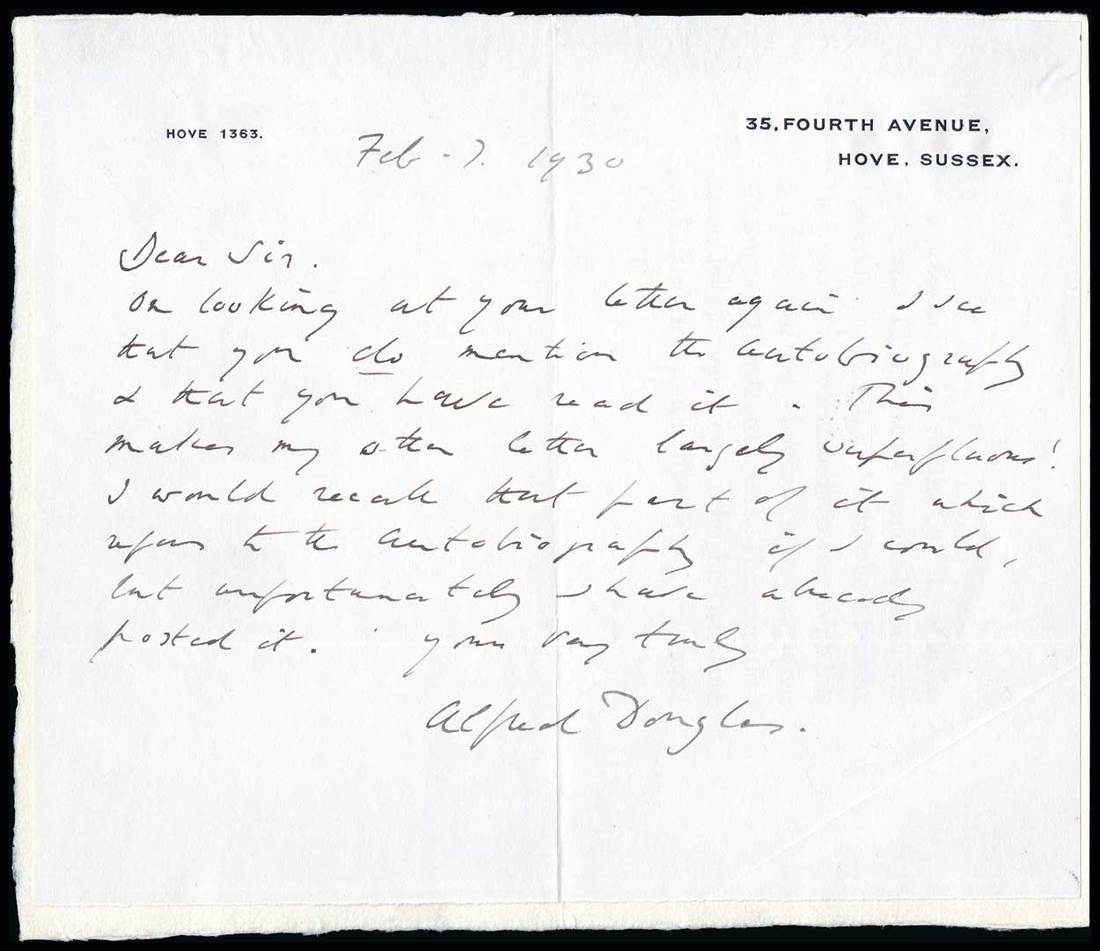 HOVE 1363.
35, FOURTH AVENUE,
HOVE, SUSSEX.
Feb - 7. 1930
Dear Sir.
On looking at your letter again I see
that you do mention the autobiography
& that you have read it. This
makes my other letter largely superfluous!
I would recall that part of it which
refers to the autobiography if I could,
but unfortunately I have already
posted it. Yours very truly
Alfred Douglas.